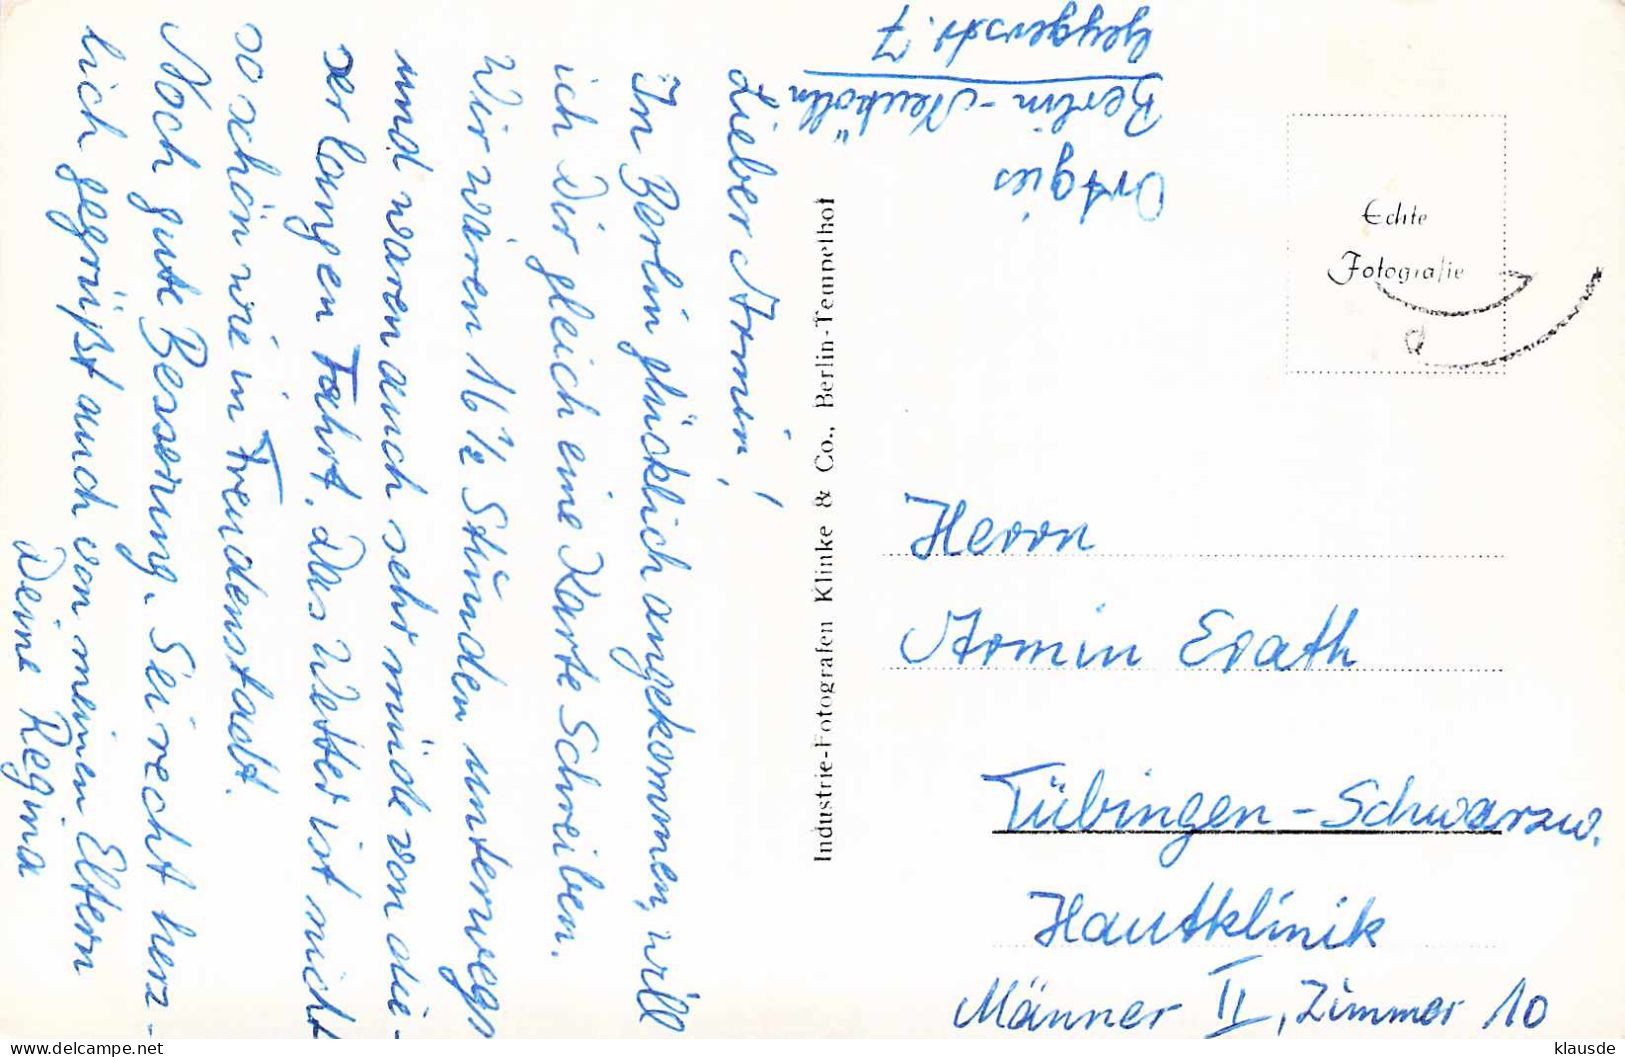 Lieber Armin!
In Berlin glücklich angekommen, will
ich Dir gleich eine Karte Schreiben.
Wir wären 16 ½ Stünden unterwegs
und waren auch sehr müde von die-
ser langen Fahrt. Das Wetter ist nicht
so schön wie in Freudenstadt.
Noch gute Besserung. Sei recht herz-
lich gegrüßt auch von meinen Eltern
Deine Regina
Ortgies
Berlin-Neukölln
Geygerstr. 7
Industrie-Fotografen Klinke & Co., Berlin-Tempelhof
Echte
Fotografie
Herrn
Armin Erath
Tübingen-Schwarzw.
Hautklinik
Männer II, Zimmer 10
klausde